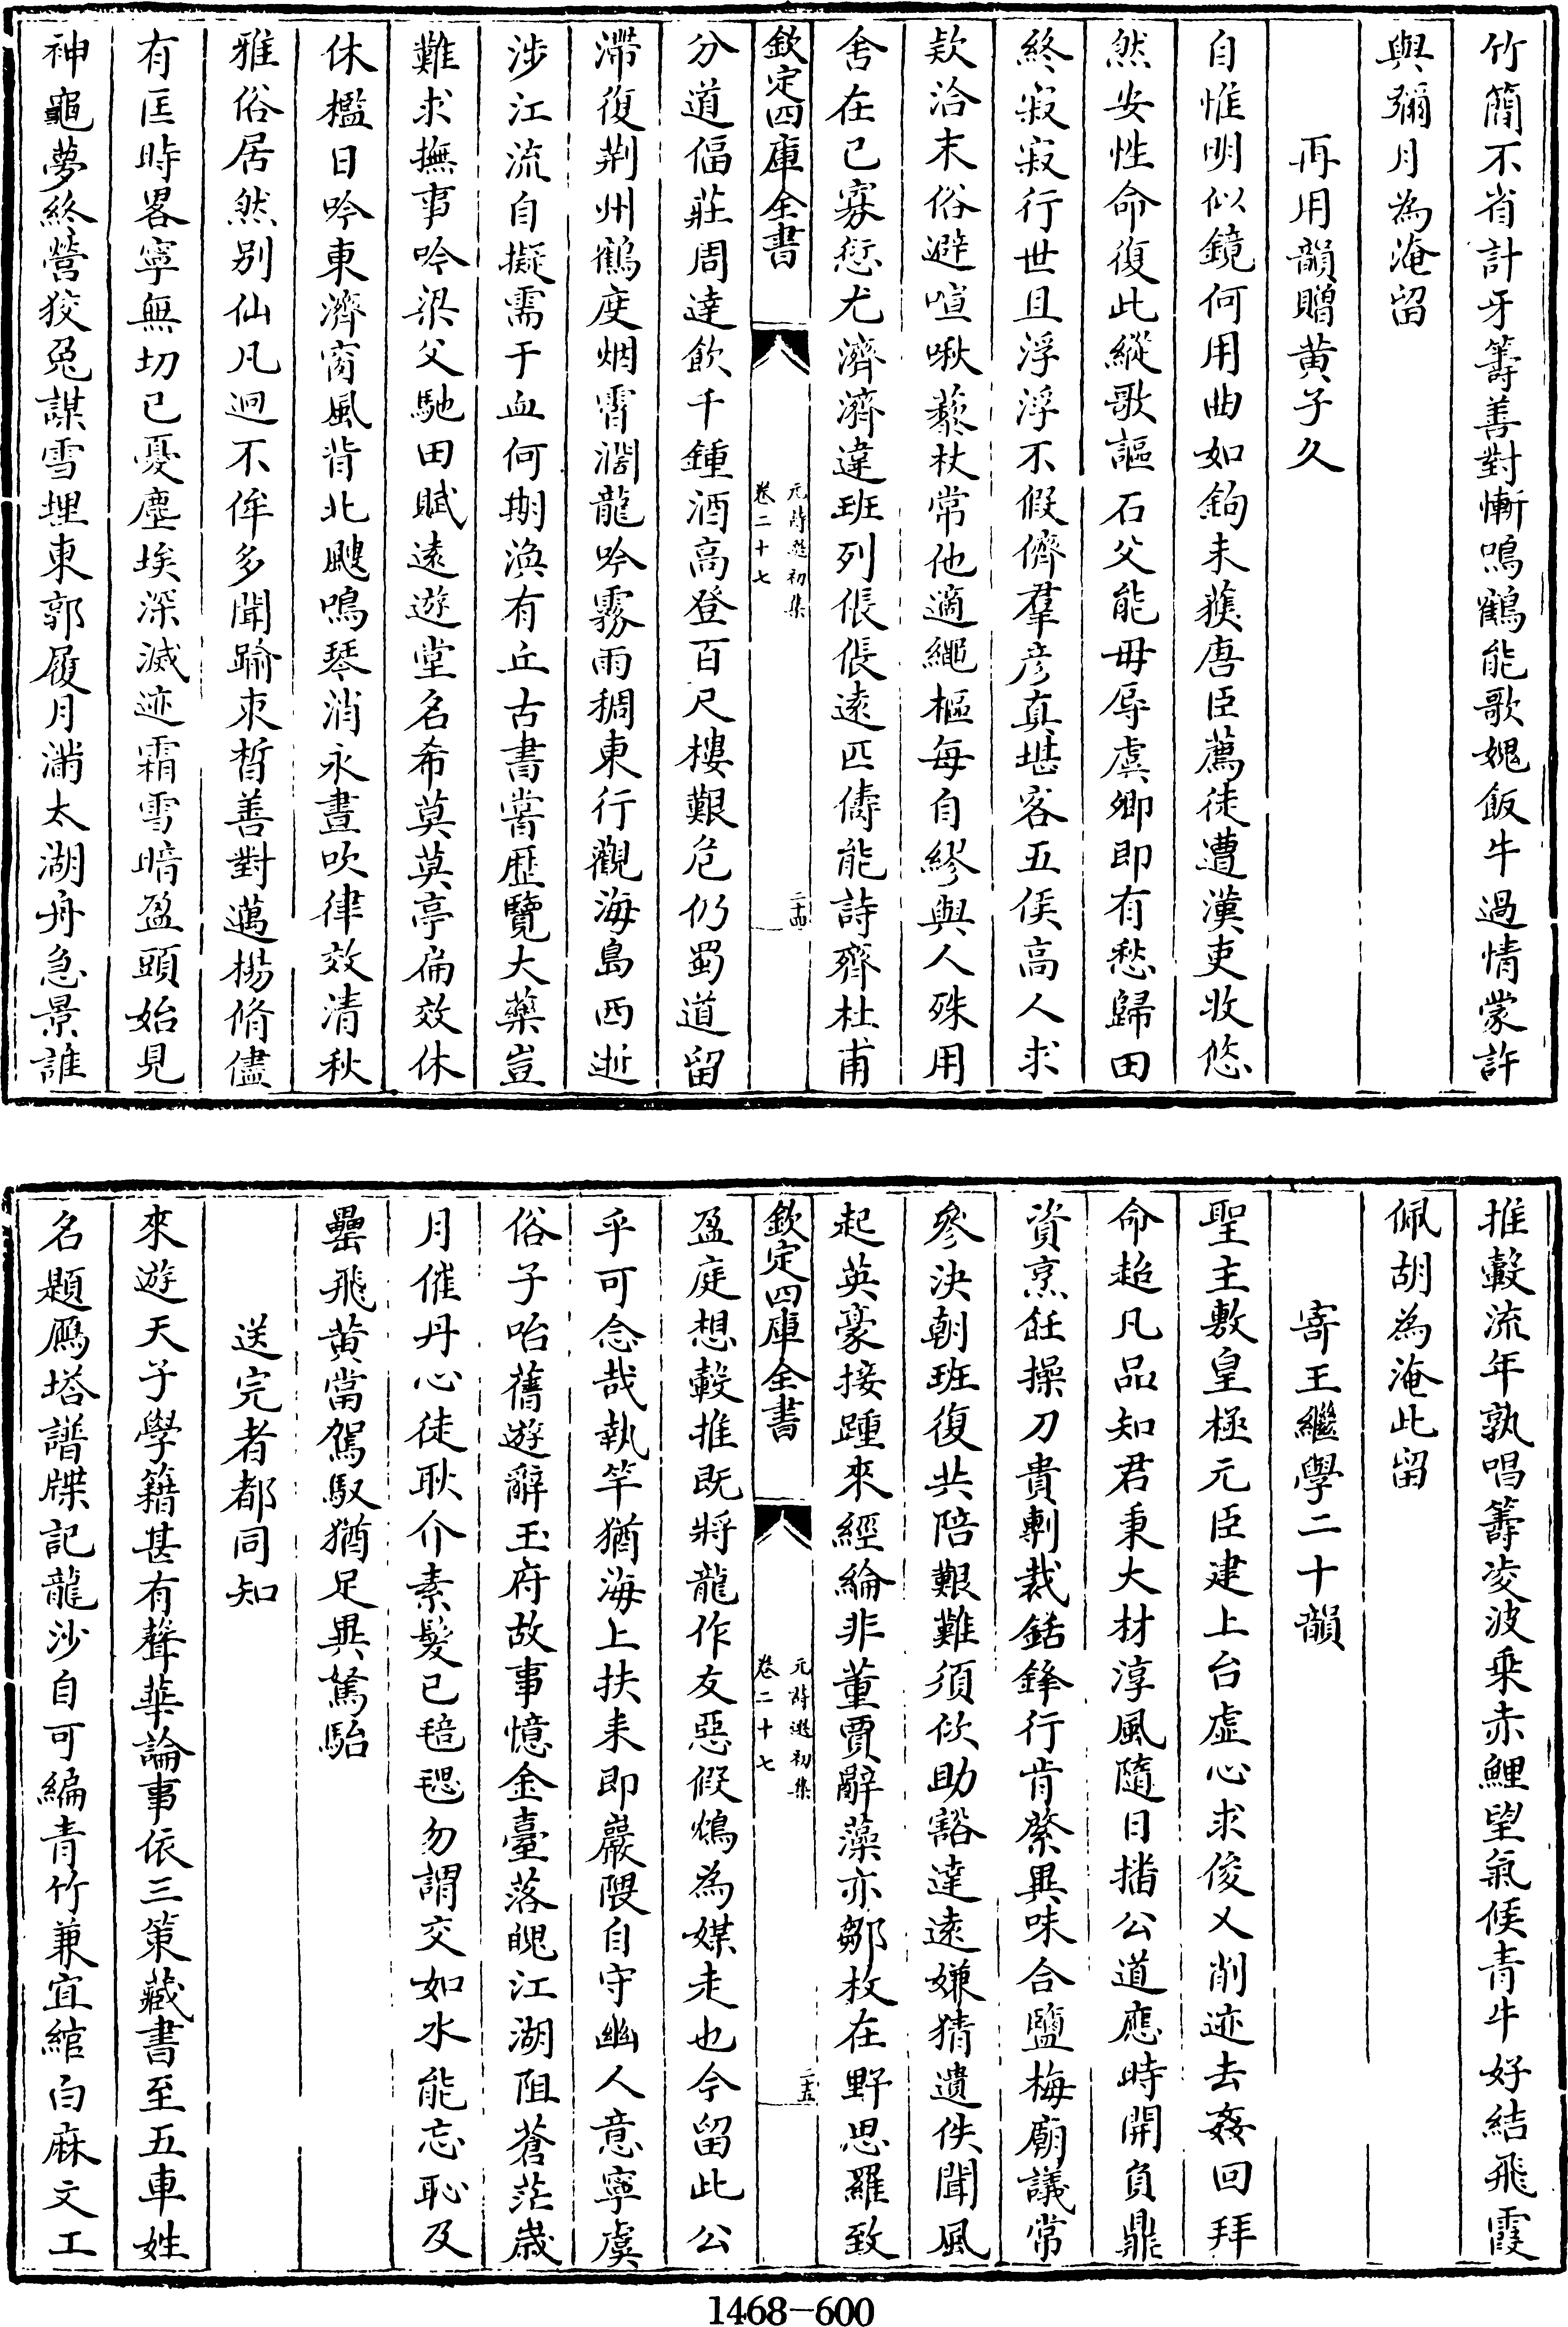 竹簡不省計牙籌善對慚鳴鶴能歌媿飯牛過情蒙許
與彌月為淹留
再用韻贈黄子久
自惟明似鏡何用曲如鉤未獲唐臣薦徒遭漢吏收悠
然安性命復此縱歌謳石父能毋辱虞卿即有愁歸田
終寂寂行世且浮浮不假儕羣彦真堪客五侯髙人求
欵洽末俗避喧啾藜杖常他適繩樞每自繆與人殊用
舍在已寡愆尤濟濟違班列倀倀逺匹儔能詩齊杜甫
欽定四庫全書
元詩選初集
卷二十七
二十四
分道偪莊周達飲千鍾酒髙登百尺樓艱危仍蜀道留
滯復荆州鶴度烟霄濶龍吟霧雨稠東行觀海島西逝
涉江流自擬需于血何期渙有丘古書嘗歴覽大藥豈
難求撫事吟梁父馳田賦逺遊堂名希莫莫亭扁效休
休檻日吟東濟窗風背北颼鳴琴消永晝吹律效清秋
雅俗居然别仙凡迥不侔多聞踰束晳善對邁楊脩儘
有匡時畧寧無切已憂塵埃深滅迹霜雪暗盈頭始見
神龜夢終營狡兔謀雪埋東郭履月滿太湖舟急景誰
推轂流年孰唱籌凌波乘赤鯉望氣候青牛好結飛霞
佩胡為淹此留
寄王繼學二十韻
聖主敷皇極元臣建上台虚心求俊乂削迹去姦回拜
命超凡品知君秉大材淳風隨日播公道應時開負鼎
資烹飪操刀貴剸裁銛鋒行肯綮異味合鹽梅廟議常
參決朝班復共陪艱難須佽助豁達逺嫌猜遺佚聞風
起英豪接踵來經綸非董賈辭藻亦鄒枚在野思羅致
欽定四庫全書
元詩選初集
卷二十七
二十五
盈庭想轂推既將龍作友惡假鴆為媒走也今留此公
乎可念哉執竿猶海上扶耒即巖隈自守幽人意寧虞
俗子咍舊遊辭玉府故事憶金臺落魄江湖阻蒼茫歲
月催丹心徒耿介素髮已毰毸勿謂交如水能忘恥及
罍飛黄當駕馭猶足異駑駘
送完者都同知
來遊天子學籍甚有聲華論事依三策藏書至五車姓
名題鴈塔譜牒記龍沙自可編青竹兼宜綰白麻文工
1468-600